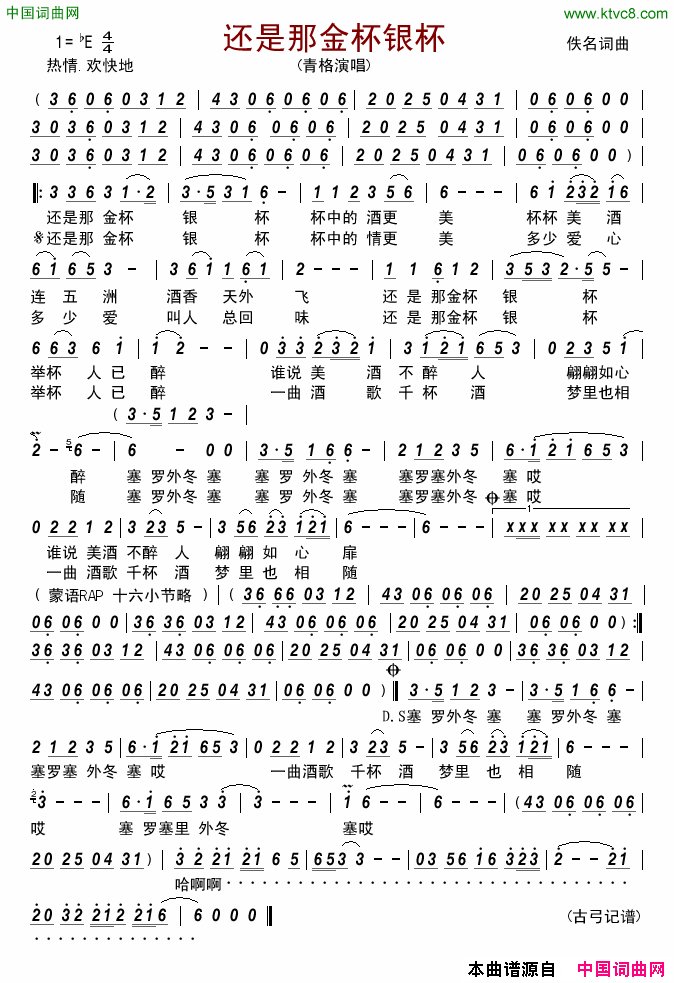 中国词曲网
www.ktvc8.com
1=♭E 4/4
还是那金杯银杯
佚名词曲
热情.欢快地
(青格演唱)
( 3 6 0 6 0 3 1 2 | 4 3 0 6 0 6 0 6 | 2 0 2 5 0 4 3 1 | 0 6 0 6 0 0 |
3 0 3 6 0 3 1 2 | 4 3 0 6 0 6 0 6 | 2 0 2 5 0 4 3 1 | 0 6 0 6 0 0 |
3 0 3 6 0 3 1 2 | 4 3 0 6 0 6 0 6 | 2 0 2 5 0 4 3 1 | 0 6 0 6 0 0 )
‖: 3 3 6 3 1·2 | 3·5 3 1 6 - | 1 1 2 3 5 6 | 6 - - - | 6 1 2 3 2 1 6 |
还是那 金杯 银 杯 杯中的 酒更 美 杯杯 美 酒
𝄋还是那 金杯 银 杯 杯中的 情更 美 多少 爱 心
6 1 6 5 3 - | 3 6 1 1 6 1 | 2 - - - | 1 1 6 1 2 | 3 5 3 2·5 5 - |
连 五 洲 酒香 天外 飞 还 是 那金杯 银 杯
多 少 爱 叫人 总回 味 还 是 那金杯 银 杯
6 6 3 6 1 | 1 2 - - | 0 3 3 2 3 2 1 | 3 1 2 1 6 5 3 | 0 2 3 5 1 |
举杯 人 已 醉 谁说 美 酒 不 醉 人 翩翩如心
举杯 人 已 醉 一曲 酒 歌 千 杯 酒 梦里也相
( 3·5 1 2 3 - |
2 - 5 6 - | 6 - 0 0 | 3·5 1 6 6 | 2 1 2 3 5 | 6·1 2 1 6 5 3 |
醉 塞 罗外冬 塞 塞 罗 外冬 塞 塞罗塞外冬 塞 哎
随 塞 罗外冬 塞 塞 罗 外冬 塞 塞罗塞外冬 𝄌塞 哎
0 2 2 1 2 | 3 2 3 5 - | 3 5 6 2 3 1 2 1 | 6 - - - | 6 - - - | 1 x x x x x x x x |
谁说 美酒 不醉 人 翩翩 如 心 扉
一曲 酒歌 千杯 酒 梦 里 也 相 随
( 蒙语RAP 十六小节略 ) | ( 3 6 6 6 0 3 1 2 | 4 3 0 6 0 6 0 6 | 2 0 2 5 0 4 3 1 |
0 6 0 6 0 0 | 3 6 3 6 0 3 1 2 | 4 3 0 6 0 6 0 6 | 2 0 2 5 0 4 3 1 | 0 6 0 6 0 0 ) :‖
3 6 3 6 0 3 1 2 | 4 3 0 6 0 6 0 6 | 2 0 2 5 0 4 3 1 | 0 6 0 6 0 0 | 3 6 3 6 0 3 1 2 |
𝄌
4 3 0 6 0 6 0 6 | 2 0 2 5 0 4 3 1 | 0 6 0 6 0 0 ) ‖ 3·5 1 2 3 - | 3·5 1 6 6 |
D.S塞 罗外冬 塞 塞 罗外冬 塞
2 1 2 3 5 | 6·1 2 1 6 5 3 | 0 2 2 1 2 | 3 2 3 5 - | 3 5 6 2 3 1 2 1 | 6 - - |
塞罗塞 外冬 塞 哎 一曲酒歌 千杯 酒 梦里 也 相 随
2 3 - - - | 6·1 6 5 3 3 | 3 - - - | 1 6 - - | 6 - - - | ( 4 3 0 6 0 6 0 6 |
哎 塞 罗塞里 外冬 塞哎
2 0 2 5 0 4 3 1 ) | 3 2 2 1 2 1 6 5 | 6 5 3 3 - - | 0 3 5 6 1 6 1 2 1 2 3 | 2 - - 2 1 |
哈啊啊 · · · · · ·
2 0 3 2 2 1 2 2 1 6 | 6 0 0 0 ‖
(古弓记谱)
本曲谱源自 中国词曲网